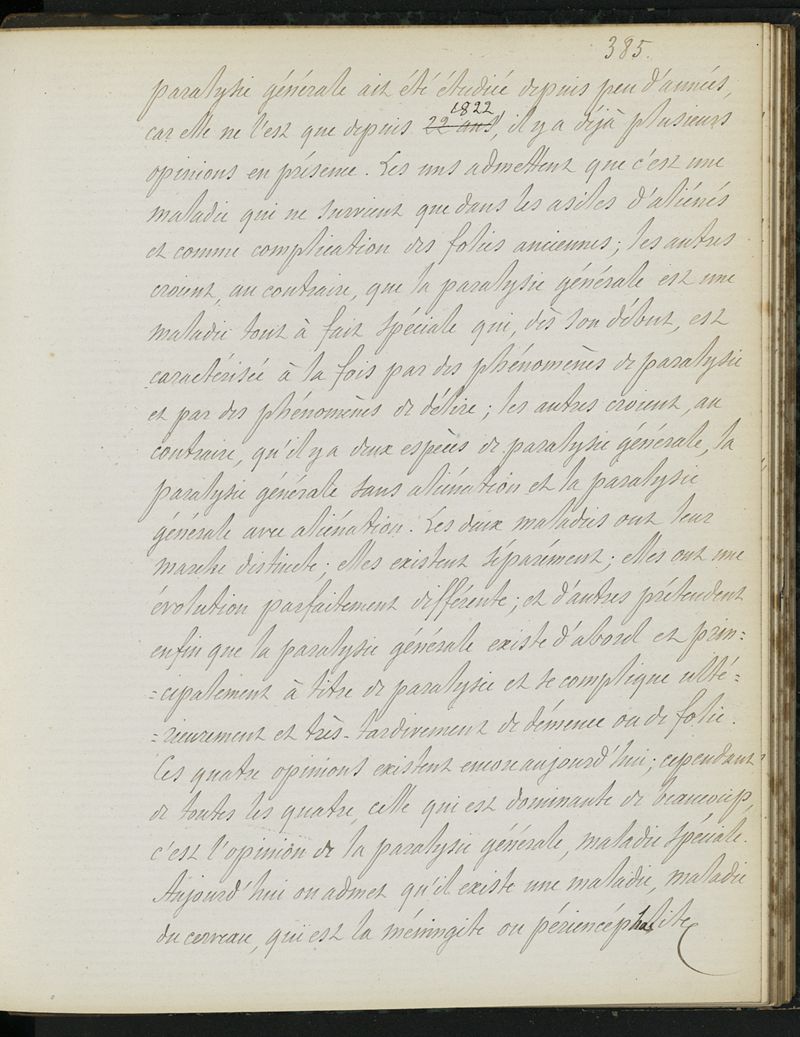 385.
paralysie générale ait été étudiée depuis peu d'années,
1822
car elle ne l'est que depuis 22 ans, il y a déjà plusieurs
opinions en présence. Les uns admettent que c'est une
maladie qui ne survient que dans les asiles d'aliénés
et comme complication des folies anciennes; les autres
croient, au contraire, que la paralysie générale est une
maladie tout à fait spéciale qui, dès son début, est
caractérisée à la fois par des phénomènes de paralysie
et par des phénomènes de délire; les autres croient, au
contraire, qu'il y a deux espèces de paralysie générale, la
paralysie générale sans aliénation et la paralysie
générale avec aliénation. Les deux maladies ont leur
marche distincte; elles existent séparément; elles ont une
évolution parfaitement différente; et d'autres prétendent
enfin que la paralysie générale existe d'abord et prin=
=cipalement à titre de paralysie et se complique ulté=
=rieurement et très-tardivement de démence ou de folie.
Ces quatre opinions existent encore aujourd'hui; cependant
de toutes les quatre, celle qui est dominante de beaucoup,
c'est l'opinion de la paralysie générale, maladie spéciale.
Aujourd'hui on admet qu'il existe une maladie, maladie
du cerveau, qui est la méningite ou périencéphalite